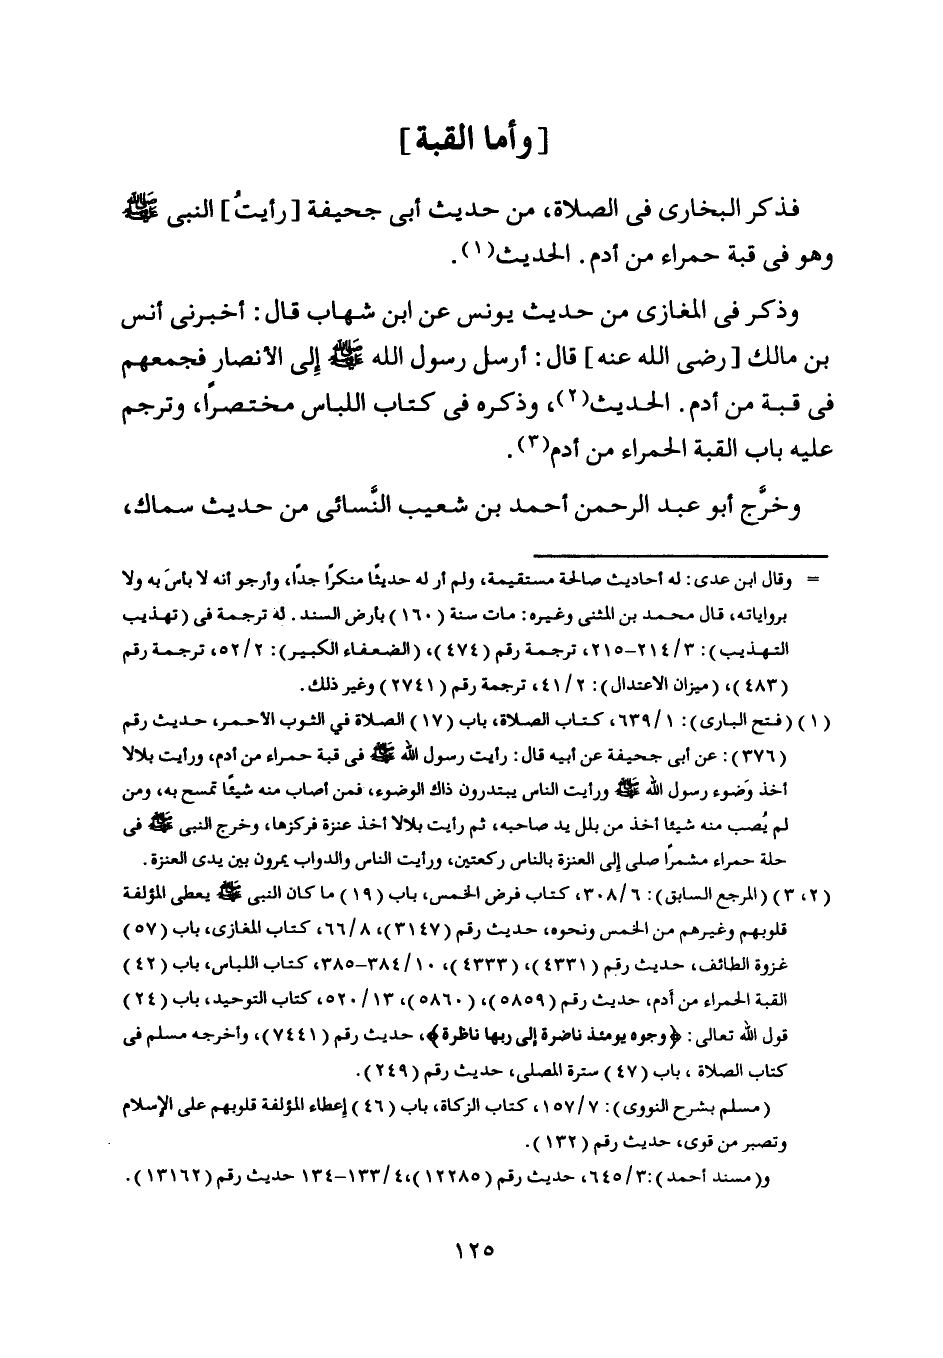 [وأما القبة]
فذكر البخارى فى الصلاة، من حديث أبى جحيفة [رأيتُ] النبى ﷺ
وهو فى قبة حمراء من أدم. الحديث(١).
وذكر فى المغازى من حديث يونس عن ابن شهاب قال: أخبرنى أنس
بن مالك [رضى الله عنه] قال: أرسل رسول الله ﷺ إلى الأنصار فجمعهم
فى قبة من أدم. الحديث(٢)، وذكره فى كتاب اللباس مختصراً، وترجم
عليه باب القبة الحمراء من أدم(٣).
وخرَّج أبو عبد الرحمن أحمد بن شعيب النَّسائى من حديث سماك،
= وقال ابن عدى: له أحاديث صالحة مستقيمة، ولم أر له حديثًا منكرًا جدًا، وأرجو أنه لا بأسَ به ولا
برواياته، قال محمد بن المثنى وغيره: مات سنة (١٦٠) بأرض السند. له ترجمة فى (تهذيب
التهذيب): ٣/ ٢١٤-٢١٥، ترجمة رقم (٤٧٤)، (الضعفاء الكبير): ٢/ ٥٢، ترجمة رقم
(٤٨٣)، (ميزان الاعتدال): ٢/ ٤١، ترجمة رقم (٢٧٤١) وغير ذلك.
(١) (فتح البارى): ١/ ٦٣٩، كتاب الصلاة، باب (١٧) الصلاة في الثوب الأحمر، حديث رقم
(٣٧٦): عن أبى جحيفة عن أبيه قال: رأيت رسول الله ﷺ فى قبة حمراء من أدم، ورأيت بلالا
أخذ وَضوء رسول الله ﷺ ورأيت الناس يبتدرون ذاك الوضوء، فمن أصاب منه شيئًا تمسح به، ومن
لم يُصب منه شيئا أخذ من بلل يد صاحبه، ثم رأيت بلالا أخذ عنزة فركزها، وخرج النبى ﷺ فى
حلة حمراء مشمرًا صلى إلى العنزة بالناس ركعتين، ورأيت الناس والدواب يمرون بين يدى العنزة.
(٢، ٣) (المرجع السابق): ٦/ ٣٠٨، كتاب فرض الخمس، باب (١٩) ما كان النبى ﷺ يعطى المؤلفة
قلوبهم وغيرهم من الخمس ونحوه، حديث رقم (٣١٤٧)، ٨/ ٦٦، كتاب المغازى، باب (٥٧)
غزوة الطائف، حديث رقم (٤٣٣١)، (٤٣٣٣)، ١٠/ ٣٨٤-٣٨٥، كتاب اللباس، باب (٤٢)
القبة الحمراء من أدم، حديث رقم (٥٨٥٩)، (٥٨٦٠)، ١٣/ ٥٢٠، كتاب التوحيد، باب (٢٤)
قول الله تعالى: ﴿وجوه يومئذ ناضرة إلى ربها ناظرة﴾، حديث رقم (٧٤٤١)، وأخرجه مسلم فى
كتاب الصلاة ، باب (٤٧) سترة المصلى، حديث رقم (٢٤٩).
(مسلم بشرح النووى): ٧/ ١٥٧، كتاب الزكاة، باب (٤٦) إعطاء المؤلفة قلوبهم على الإسلام
وتصبر من قوى، حديث رقم (١٣٢).
و(مسند أحمد):٣/ ٦٤٥، حديث رقم (١٢٢٨٥)،٤/ ١٣٣-١٣٤ حديث رقم (١٣١٦٢).
١٢٥